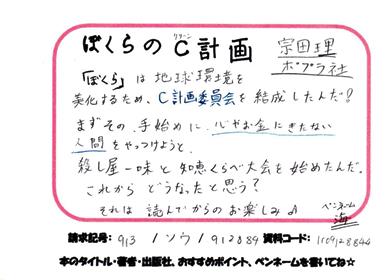 ぼくらのC計画 宗田理
クリーン
ポプラ社
「ぼくら」は地球環境を
美化するため、C計画委員会を結成したんだ?
まずその手始めに、心やお金にきたない
人間をやっつけようと、
殺し屋一味と知恵くらべ大会を始めたんだ。
これからどうなったと思う?
それは読んでからのお楽しみ♪
ペンネーム
海
請求記号: 913 /ソウ/ 912889 資料コード: 1109128844
本のタイトル・著者・出版社、おすすめポイント、ペンネームを書いてね☆